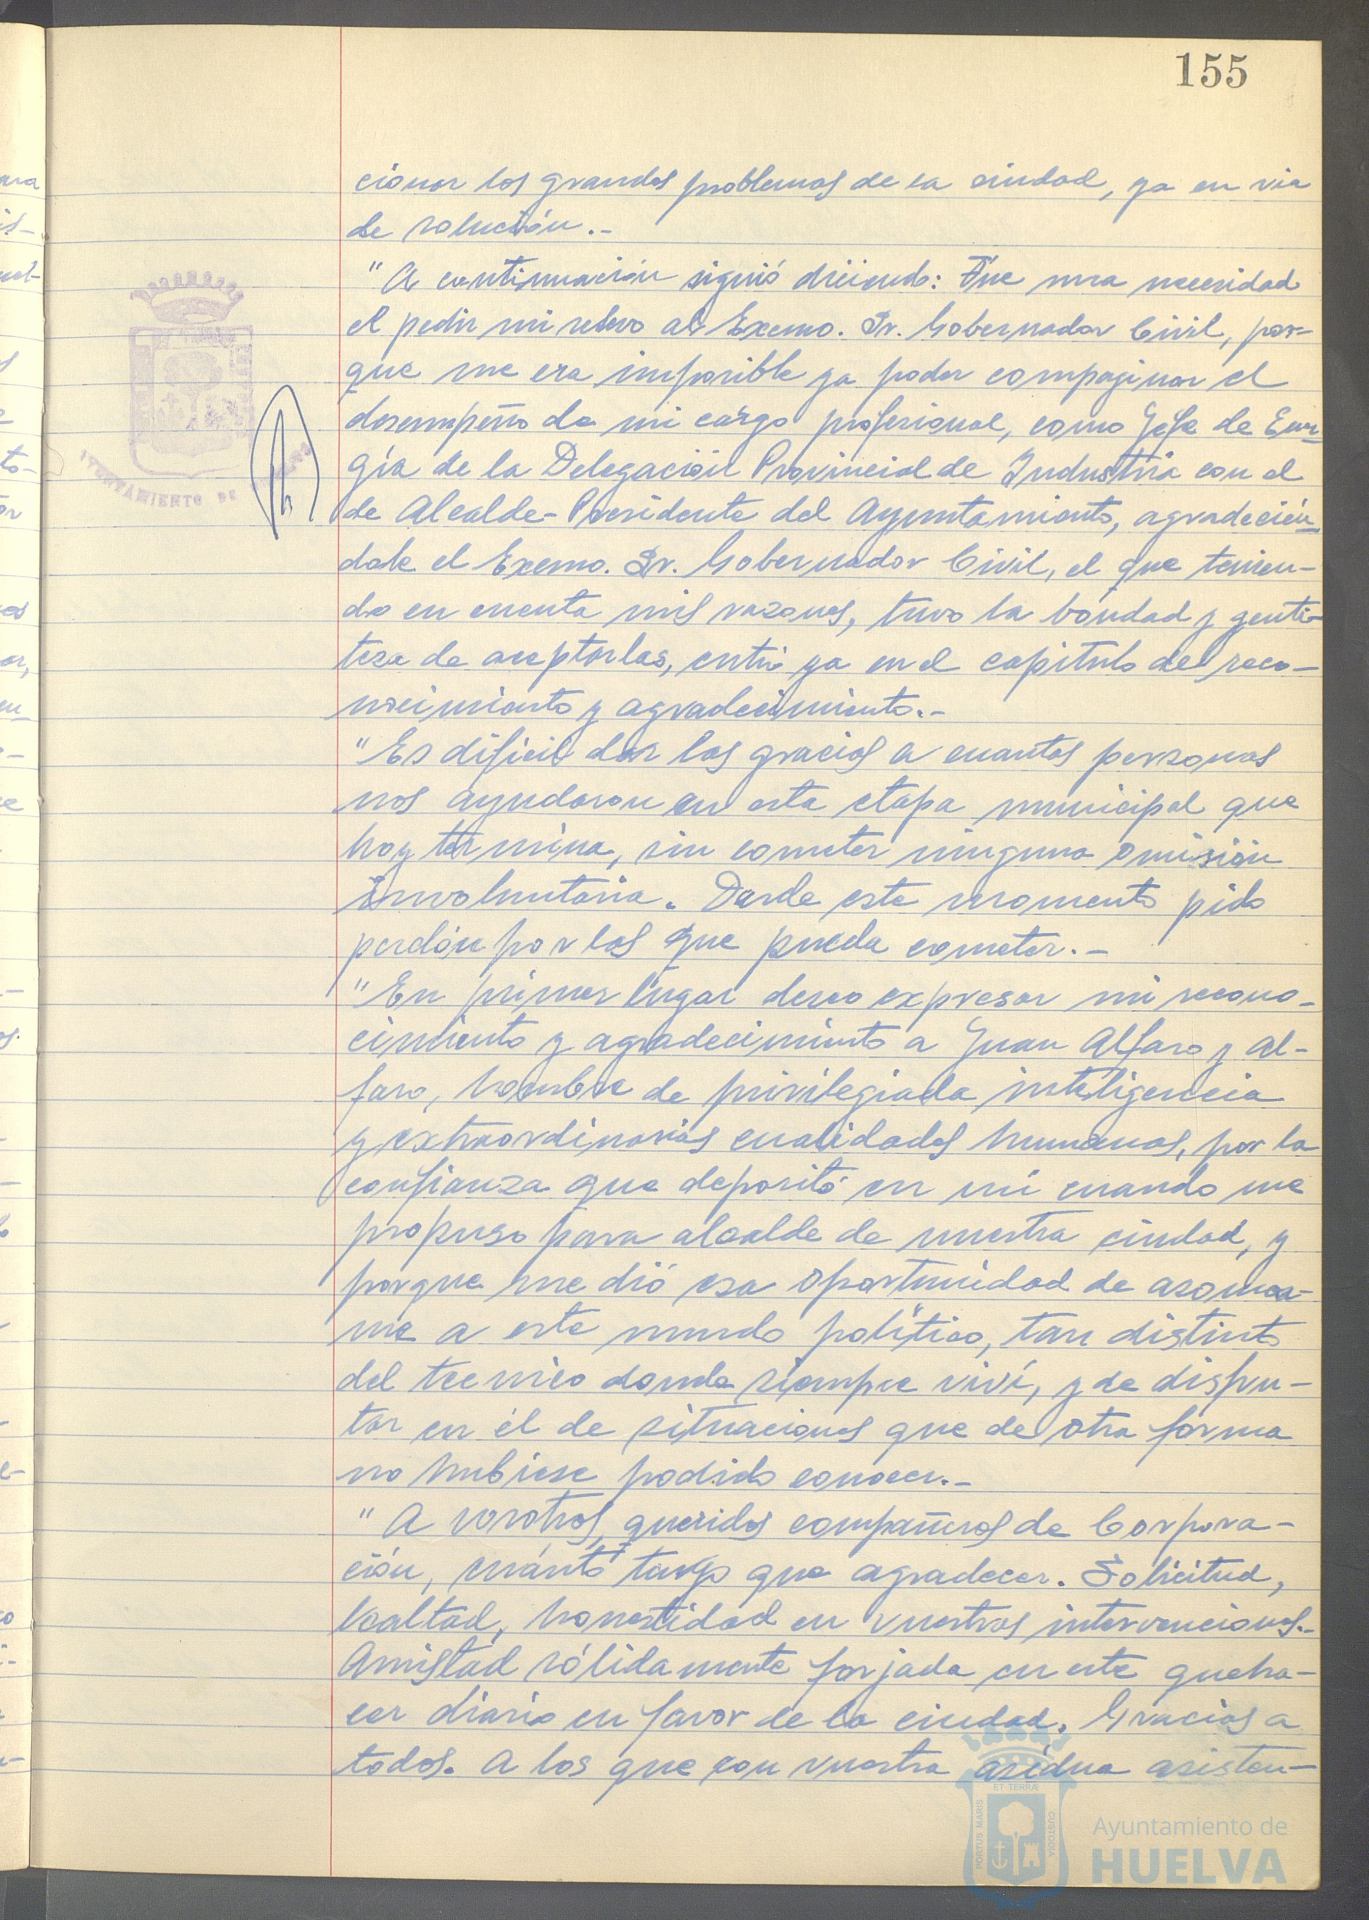 155
cionar los grandes problemas de la ciudad, ya en vía
de solución.-
"A continuación siguió diciendo: Fue una necesidad
el pedir mi relevo al Excmo. Sr. Gobernador Civil, por-
que me era imposible ya poder compaginar el
desempeño de mi cargo profesional, como Jefe de Ener-
gía de la Delegación Provincial de Industria con el
de Alcalde-Presidente del Ayuntamiento, agradecién-
dole el Excmo. Sr. Gobernador Civil, el que tenien-
do en cuenta mis razones, tuvo la bondad y genti-
leza de aceptarlas, entré ya en el capítulo del reco-
nocimiento y agradecimiento.-
"Es difícil dar las gracias a cuantas personas
nos ayudaron en esta etapa municipal que
hoy termina, sin cometer ninguna omisión
involuntaria. Desde este momento pido
perdón por las que pueda cometer.-
"En primer lugar deseo expresar mi recono-
cimiento y agradecimiento a Juan Alfaro y Al-
faro, hombre de privilegiada inteligencia
y extraordinarias cualidades humanas, por la
confianza que depositó en mí cuando me
propuso para alcalde de nuestra ciudad, y
porque me dió esa oportunidad de asomar-
me a este mundo político, tan distinto
del tecnico donde siempre viví, y de disfru-
tar en él de situaciones que de otra forma
no hubiese podido conocer.-
"A vosotros, queridos compañeros de Corpora-
ción, cuánto tengo que agradecer. Solicitud,
lealtad, honestidad en vuestras intervenciones.-
Amistad sólidamente forjada en este queha-
cer diario en favor de la ciudad. Gracias a
todos. A los que con vuestra asidua asisten-
AYUNTAMIENTO DE
PORTUS MARIS
ET TERRÆ
CUSTODIA
Ayuntamiento de
HUELVA